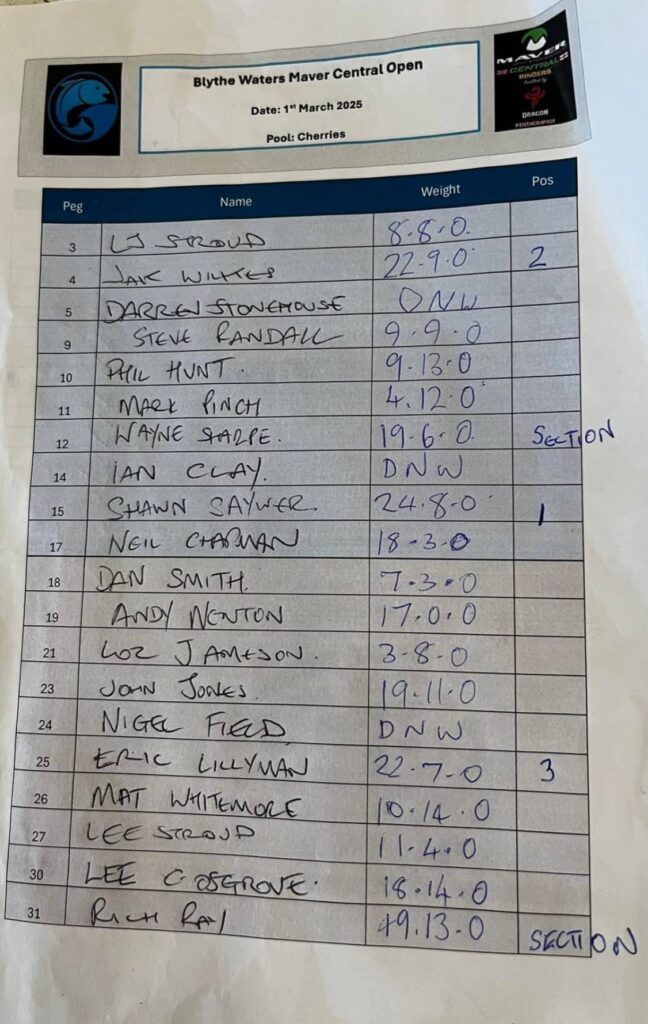 Blythe Waters Maver Central Open
Date: 1st March 2025
Pool: Cherries
MAVER
CENTRAL
RINGERS
DRAGON
Peg Name Weight Pos
3 LJ STROUD 8-8-0
4 JAKE WILKES 22-9-0 2
5 DARREN STONEHOUSE DNW
9 STEVE RANDALL 9-9-0
10 PHIL HUNT. 9-13-0
11 MARK PINCH 4.12.0
12 WAYNE SHARPE. 19-6-0 SECTION
14 IAN CLAY. DNW
15 SHAWN SAYWER. 24.8-0 1
17 NEIL CHAPMAN 18-3-0
18 DAN SMITH. 7-3-0
19 ANDY NEWTON 17.0.0
21 LOZ JAMESON. 3-8-0
23 JOHN JONES. 19-11-0
24 NIGEL FIELD DNW
25 ERIC LILLYMAN 22-7-0 3
26 MAT WHITEMORE 10-14.0
27 LEE STROUD 11-4-0
30 LEE COSGROVE. 18-14-0
31 RICH RAY 19.13-0 SECTION